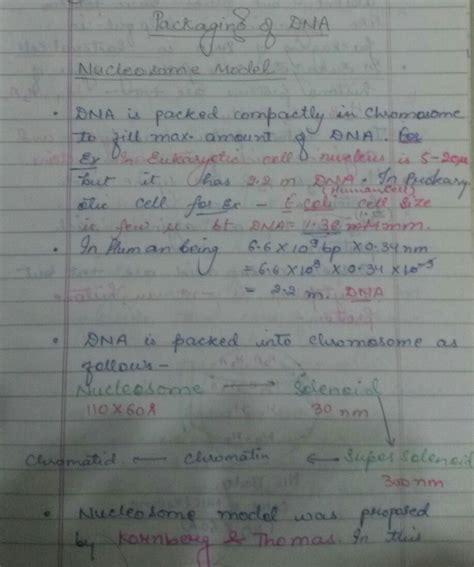 Packaging of DNA
Nucleosome Model
• DNA is packed compactly in Chromosome
to fill max. amount of DNA. for
Ex In Eukaryotic cell nucleus is 5-20μ
but it has 2.2 m DNA. In Prokary
(Human cell)
otic cell for Ex - E.coli cell size
is few μ bt DNA= 1.36 mm.
• In Human being 6.6 X 10⁹ bp X 0.34 nm
= 6.6 X 10⁹ X 0.34 X 10⁻⁹
= 2.2 m. DNA
• DNA is packed into chromosome as
follows -
Nucleosome → Solenoid
110 X 60Å 30 nm
Chromatid ← Chromatin ← Super Solenoid
300 nm
• Nucleosome model was proposed
by Kornberg & Thomas. In this